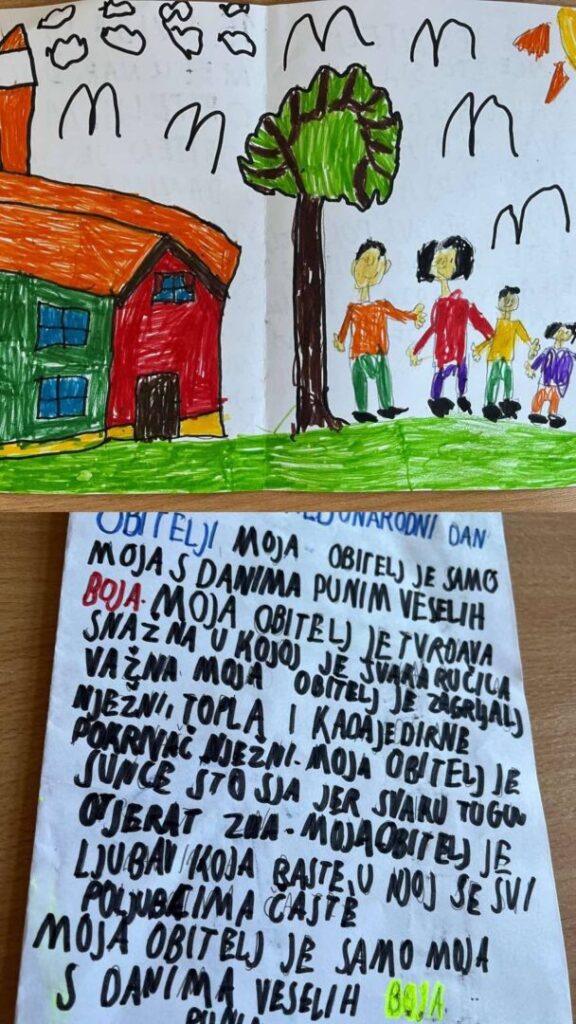 OBITELJI MEĐUNARODNI DAN
MOJA OBITELJ JE SAMO
MOJA S DANIMA PUNIM VESELIH
BOJA. MOJA OBITELJ JE TVRĐAVA
SNAŽNA U KOJOJ JE SVAKA RUČICA
VAŽNA MOJA OBITELJ JE ZAGRLJALJ
NJEŽNI, TOPLA I KADAJEDIRNE
POKRIVAČ NJEZNI. MOJA OBITELJ JE
SUNCE STO SJA JER SVAKU TUGU
OTJERAT ZNA. MOJA OBITELJ JE
LJUBAV KOJA RASTE, U NJOJ SE SVI
POLJUBCIMA ČASTE
MOJA OBITELJ JE SAMO MOJA
S DANIMA VESELIH BOJA